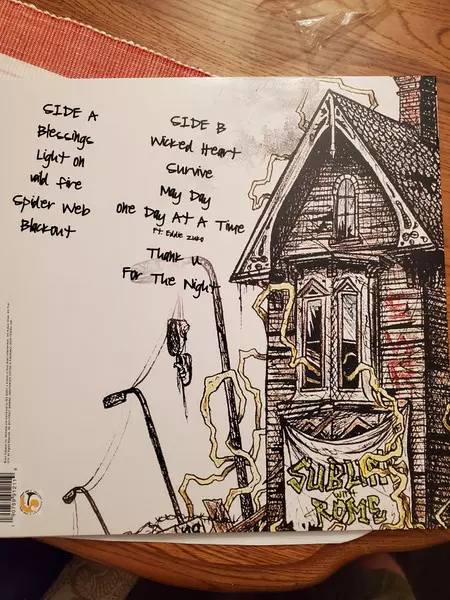 SIDE A
Blessings
Light On
Wild fire
Spider Web
Blackout
SIDE B
Wicked Heart
Survive
May Day
One Day At A Time
Ft. Eddie Zuko
Thank U
For The Night
SUBLIME
WITH
ROME